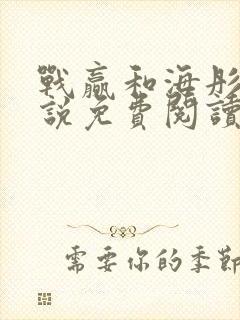 戰贏和海彤
說免費閱讀
需要你的季節